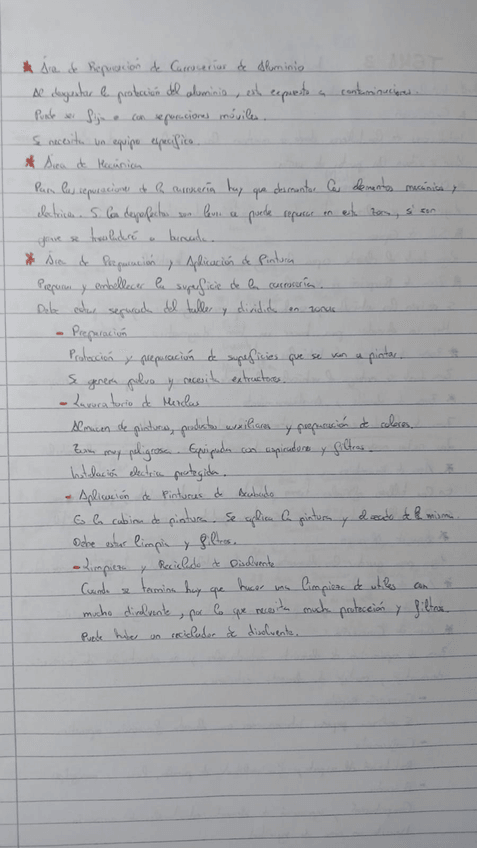 * Área de Reparación de Carrocerías de Aluminio
Al desgastar la protección del aluminio, está expuesto a contaminaciones.
Puede ser fija o con separaciones móviles.
Se necesita un equipo específico.
* Área de Mecánica
Para las reparaciones de la carrocería hay que desmontar los elementos mecánica y
eléctrica. Si los desperfectos son leves se puede reparar en esta zona, si son
grave se trasladará a bancada.
* Área de Preparación y Aplicación de Pintura
Preparan y embellecer la superficie de la carrocería.
Debe estar separada del taller y dividida en zonas
- Preparación
Protección y preparación de superficies que se van a pintar.
Se genera polvo y necesita extractores.
- Lavoratorio de Mezclas
Almacen de pinturas, productos auxiliares y preparación de colores.
Zona muy peligrosa. Equipada con aspiradores y filtros.
Instalación eléctrica protegida.
- Aplicación de Pinturas de Acabado
Es la cabina de pintura. Se aplica la pintura y el secado de la misma.
Debe estar limpia y filtros.
- Limpieza y Reciclado de Disolvente
Cuando se termina hay que hacer una limpieza de utiles con
mucho disolvente, por lo que necesita mucha protección y filtros.
Puede haber un reciclador de disolvente.